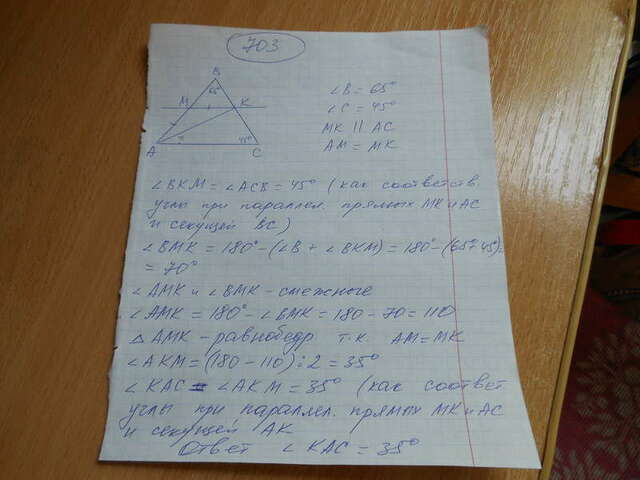 703
B
65°
M
K
A
45°
C
∠B = 65°
∠C = 45°
MK || AC
AM = MK
∠BKM = ∠ACB = 45° (как соответств.
углы при параллел. прямых MK и AC
и секущей BC)
∠BMK = 180° - (∠B + ∠BKM) = 180° - (65°+45°) =
= 70°
∠AMK и ∠BMK - смежные
∠AMK = 180° - ∠BMK = 180 - 70 = 110
△ AMK - равнобедр т.к. AM = MK
∠AKM = (180 - 110) : 2 = 35°
∠KAC = ∠AKM = 35° (как соответ
углы при параллел. прямых MK и AC
и секущей AK
Ответ ∠KAC = 35°